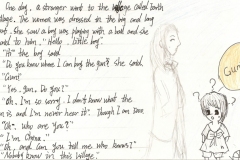 One day, a stranger went to the village called South
Village. The woman was dressed in the boy and boy
out. She saw a boy was playing with a ball and she
said to him, "Hello, little boy."
"Hi" the boy said.
"Do you know where I can buy the gun? she said.
"Gun?"
"Yes. Gun. Do you?"
"Oh. I'm so sorry. I don't know what the
gun is and I'm never hear it. Though I am
"Uh. Who are you?"
"I'm China."
"Oh. and Can you tell me who knows?"
"Nobody know in this village."
Gun
? ? ?